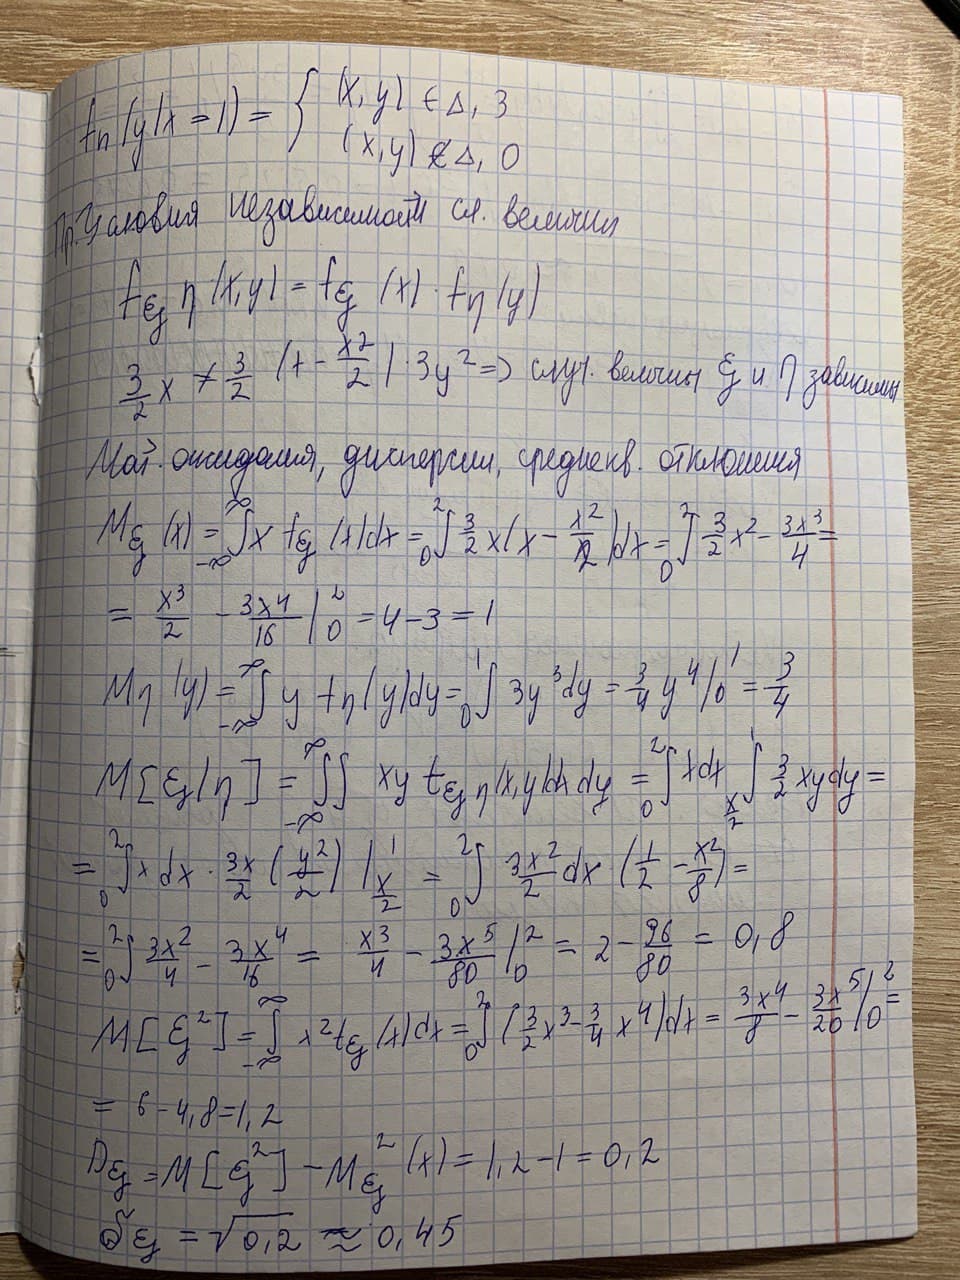 fη(y|x=1) = { (x,y) ∈ Δ, 3
(x,y) ∉ Δ, 0
Пр. Условия независимости сл. величин
fξη(x,y) = fξ(x) · fη(y)
3/2 x ≠ 3/2 (x - x²/2) · 3y² => случ. величины ξ и η зависимы
Мат. ожидания, дисперсии, среднекв. отклонения
Mξ(x) = ∫_{-∞}^{∞} x fξ(x)dx = ∫_0^2 3/2 x(x - x²/2)dx = ∫_0^2 3/2 x² - 3x³/4 =
= x³/2 - 3x⁴/16 |_0^2 = 4 - 3 = 1
Mη(y) = ∫_{-∞}^{∞} y fη(y)dy = ∫_0^1 3y³dy = 3/4 y⁴ |_0^1 = 3/4
M[ξ|η] = ∫∫_{-∞}^{∞} xy fξη(x,y)dxdy = ∫_0^2 xdx ∫_{x/2}^1 3/2 xydy =
= ∫_0^2 xdx · 3x/2 (y²/2) |_{x/2}^1 = ∫_0^2 3x²/2 dx (1/2 - x²/8) =
= ∫_0^2 3x²/4 - 3x⁴/16 = x³/4 - 3x⁵/80 |_0^2 = 2 - 96/80 = 0,8
M[ξ²] = ∫_{-∞}^{∞} x² fξ(x)dx = ∫_0^2 (3/2 x³ - 3/4 x⁴)dx = 3x⁴/8 - 3x⁵/20 |_0^2 =
= 6 - 4,8 = 1,2
Dξ = M[ξ²] - Mξ²(x) = 1,2 - 1 = 0,2
σξ = √0,2 ≈ 0,45